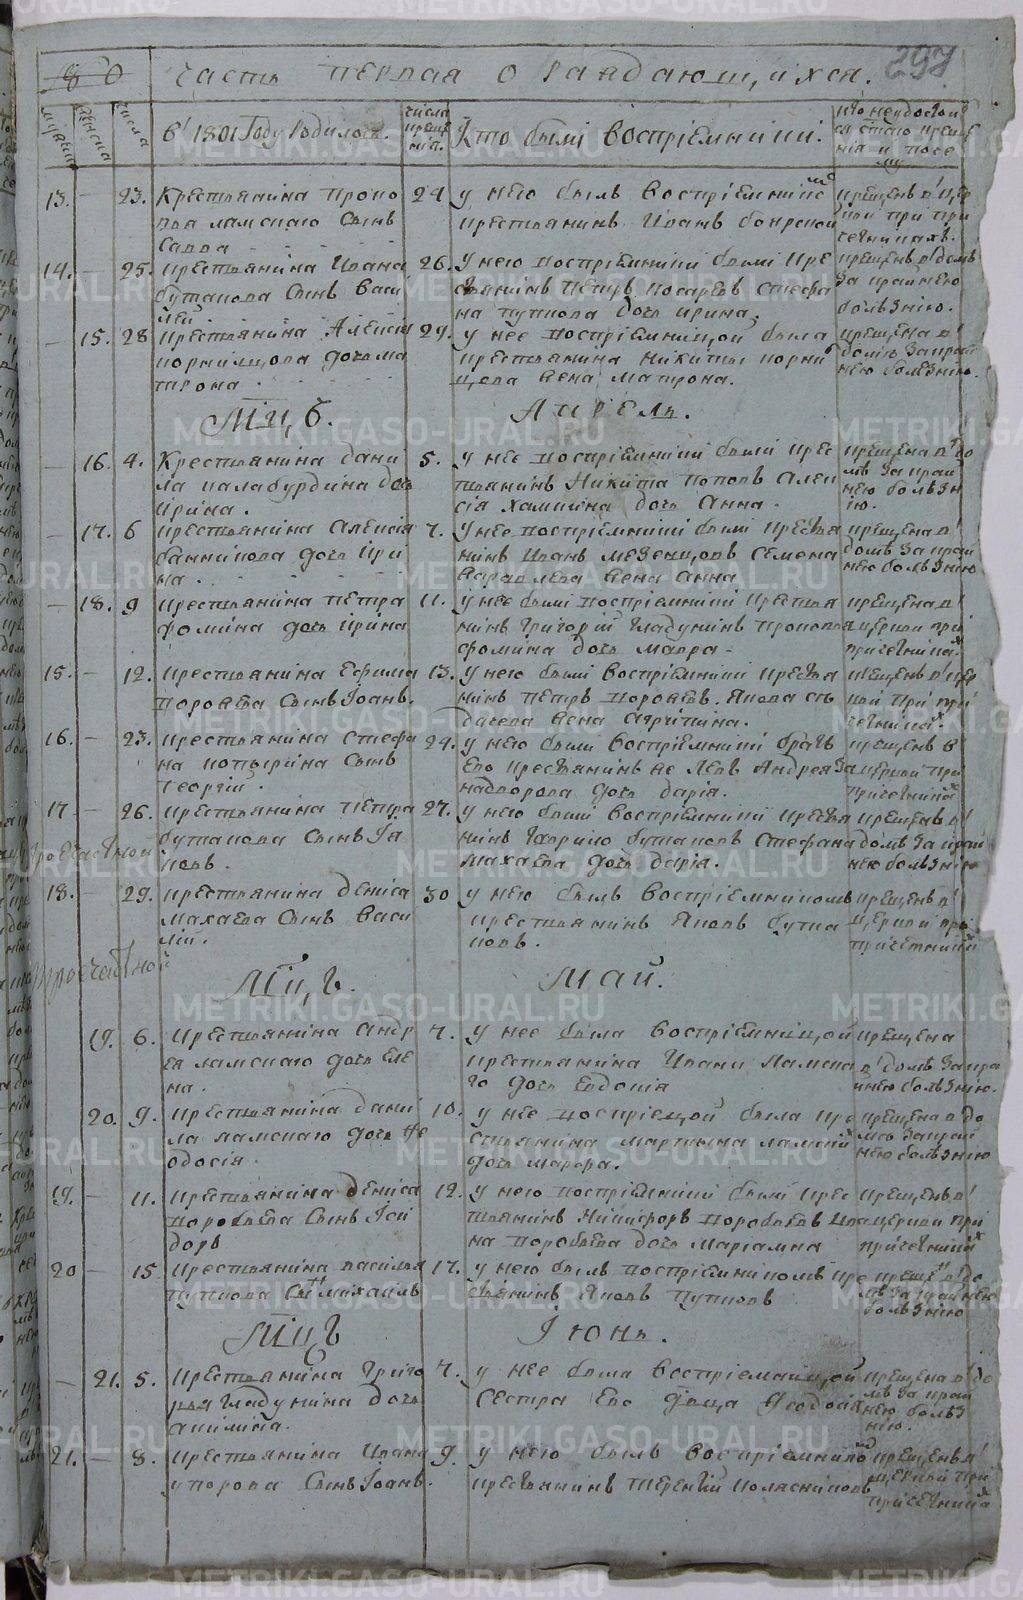 80 Часть первая о раждающихся. 297
мужеск женска числа
в 1801 Году Родилось.
числа крещения.
Кто были Воспріемники.
13. — 23. Крестьянина Проко
пья ламскаго Сынъ
Савва
24. у него былъ Воспріемникомъ
крестьянинъ Иванъ боярской
крещенъ в цер
кви при при
четникахъ.
14. — 25. крестьянина Ивана
бутакова Сынъ Васи
лей
26. у него воспріемники были кре
стьянинъ Петръ Стефа
на пупкова дочь ирина.
крещенъ в домѣ
за крайнею
болѣзнію.
— 15. 28 крестьянина Алексея
кормильцова дочь ма
трона
29. у нее воспріемницой была
крестьянина Никиты корми
цова жена Матрона.
крещена в
домѣ за край
нею болезнію.
Мцъ. Апрель.
— 16. 4. Крестьянина дани
ла калабурдина дочь
ирина.
5. у нее воспріемники были крес
тьянинъ Никита Поповъ Алек
сія дочь Анна.
крещена в до
мѣ за край
нею болѣзн
ію.
— 17. 6 крестьянина Алексія
банникова дочь Ири
на.
7. у нее воспріемники были крестья
нинъ Иванъ Мезенцовъ Семена
жена Анна
крещена в
домѣ за край
нею болѣзнію
— 18. 9 крестьянина Петра
фомина дочь ирина
11. у нее были воспріемники крестья
нинъ Григорій Гладунинъ прокопья
фомина дочь Мавра
крещена в
церкви при
причетника
15. — 12. крестьянина Ефима
воровьева Сынъ Іоанъ.
13. у него были воспріемники крестья
нинъ Петръ воровьевъ. Якова
жена Агрипина.
крещенъ в цер
кви при при
четника
16. — 23. крестьянина Стефа
на копырина Сынъ
Георгій
24. у него были воспріемники братъ
его крестьянинъ же Левъ Андрея
надворова дочь дарія.
крещенъ в
церкви при
причетника
17 — 26. крестьянина Петра
бутакова Сынъ Ія
ковъ.
27. у него были воспріемники крестья
нинъ Гаврило бутаковъ Стефана
Махаева дочь дарія.
крещенъ в
домѣ за край
нею болѣзнію
18. — 29. крестьянина дениса
Махаева Сынъ Васи
лій.
30 у него былъ воспріемникомъ
крестьянинъ Яковъ бута
ковъ.
крещенъ в
церкви при
причетника
Мцъ. Май.
19. 6. крестьянина Андр
ея ламскаго дочь еле
на.
7. у нее была воспріемницой
крестьянина Ивана ламска
го дочь Евдокія
крещена
в домѣ за кра
йнею болѣзнію.
20. 9. крестьянина дани
ла ламскаго дочь Ѳе
одосія.
10. у нее воспріецой была кре
стьянина Мартына ламски
дочь марфа.
крещена в до
мѣ за край
нею болѣзнію
19. — 11. крестьянина дениса
воробьева Сынъ Іси
доръ
12. у него воспріемники были крес
тьянинъ Никифоръ воробьевъ Ива
на воробьева дочь Маріамна
крещенъ в
церкви при
причетника
20 — 15 крестьянина василья
пупкова Сынъ михаилъ
17. у него былъ воспріемникомъ кре
стьянинъ Яковъ Пупковъ
крещенъ в до
мѣ за крайнею
болѣзнію
Мцъ Іюнь.
— 21. 5. крестьянина Григо
рья гладунина дочь
акилина.
7. у нее была воспріемницой
сестра Ево Ѳеодосія
крещена в до
мѣ за край
нею болѣз
нію.
21. — 8. крестьянина Ивана
упорова Сынъ Іоанъ.
9. у него былъ воспріемникомъ
крестьянинъ Терентій Колясниковъ
крещенъ в
церкви при
причетника